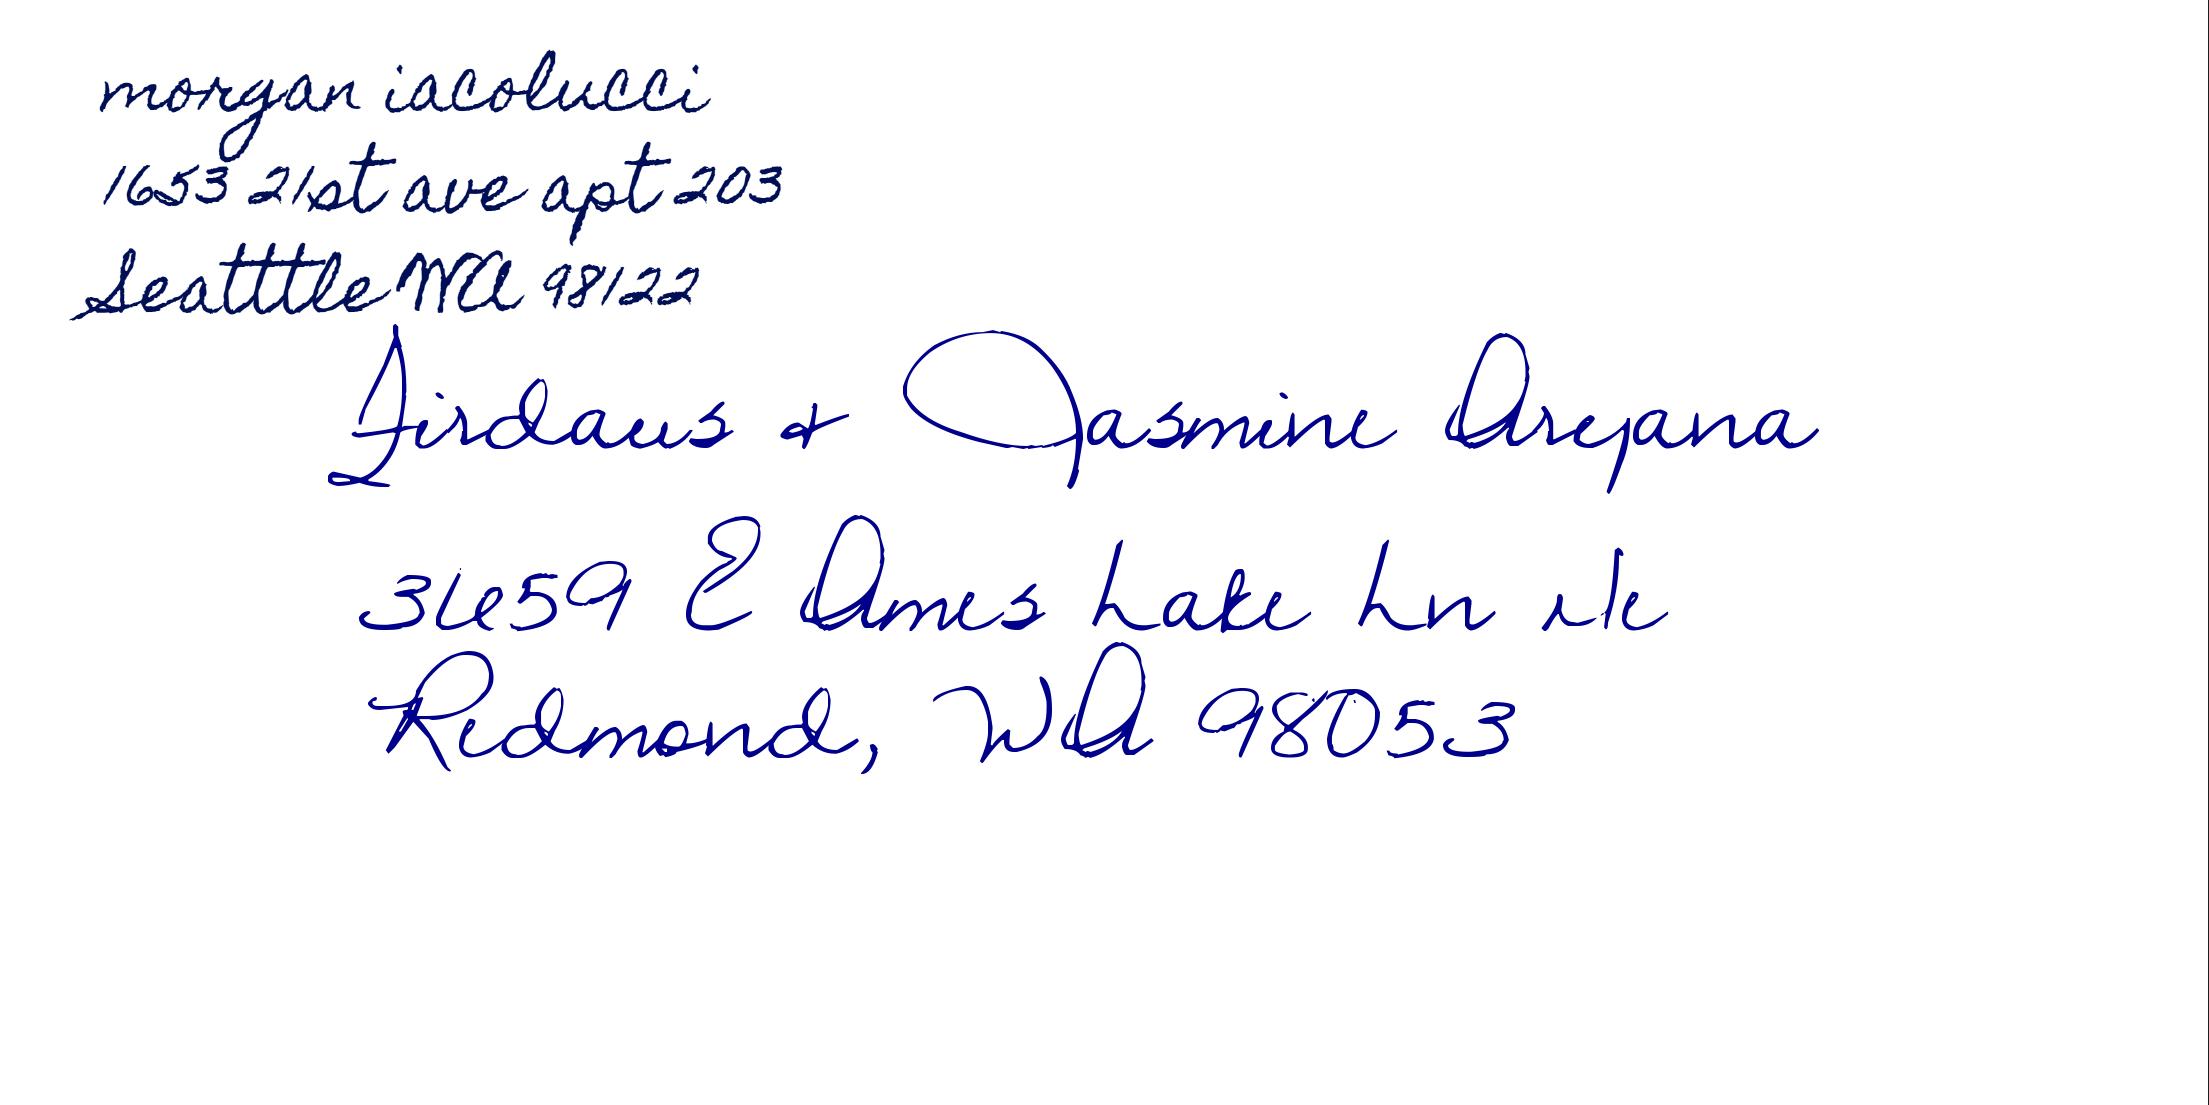 morgan iacolucci
1653 21st ave apt 203
Seatttle WA 98122
Firdaus & Jasmine Aryana
3659 E Ames Lake Ln Ne
Redmond, WA 98053